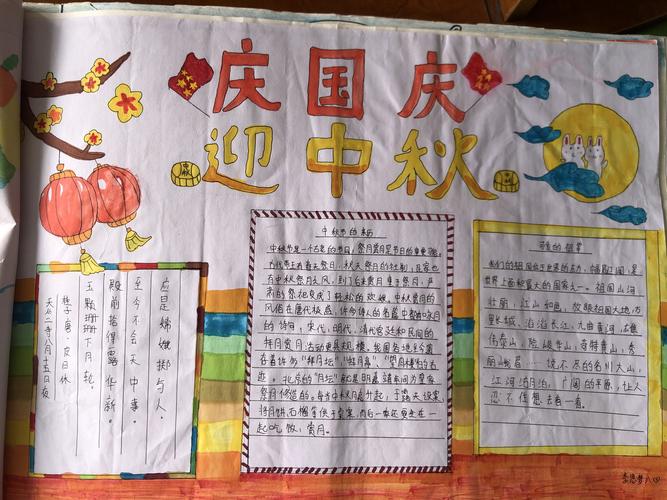 庆国庆
迎中秋
天竺寺八月十五日夜
桂子唐·皮日休
玉颗珊珊下月轮,
殿前拾得露华新。
至今不会天中事,
应是嫦娥掷与人。
中秋节的来历
中秋节是一个古老的节日,祭月赏月是节日的重要习俗。
古代帝王有春天祭日,秋天祭月的社制,民家也
有中秋祭月之风,到了后来赏月重于祭月,严
肃的祭祀变成了轻松的欢娱,中秋赏月的
风俗在唐代极盛,许多诗人的名篇中都有咏月
的诗句,宋代,明代,清代宫廷和民间的
拜月赏月活动更具规模,我国各地至今遗
存着许多"拜月坛""拜月亭""望月楼"的古
迹。北京的"月坛"就是明嘉靖年间为皇家
祭月修造的。每当中秋月亮升起,于露天设案,
将月饼,石榴
一起吃饭,赏月。
可爱的祖国
我们的祖国位于世界的东方,幅员辽阔,是
世界上面积最大的国家之一。祖国山河
壮丽,江山如画,放眼祖国大地,万
里长城,滔滔长江,九曲黄河,雄
伟泰山,险峻华山,奇特黄山,秀
丽峨眉……说不尽的名川大山,
江河湖泊,广阔的平原,让人
忍不住想去看一看。